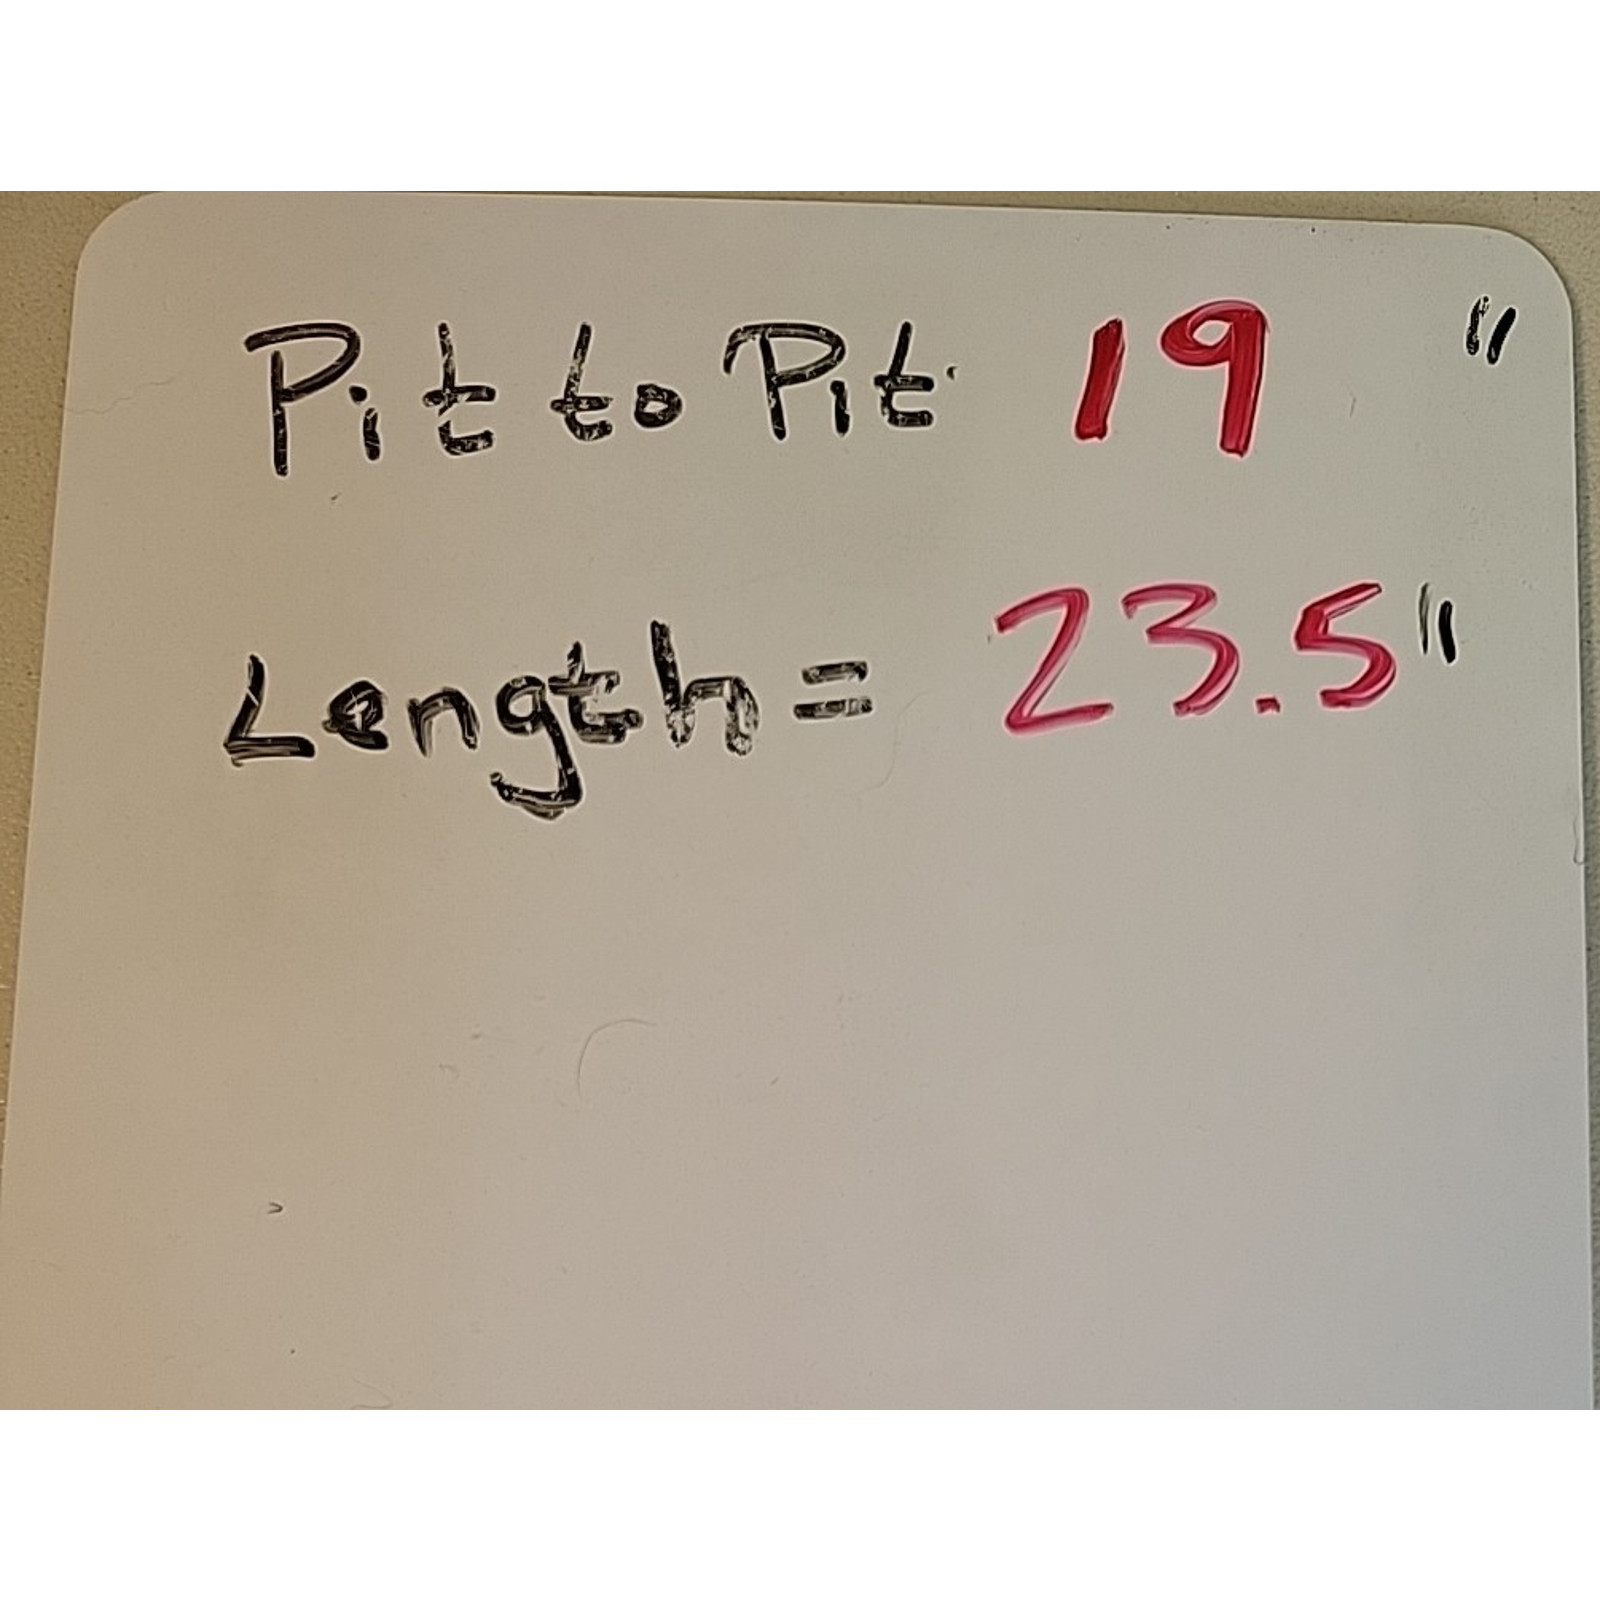 Pit to Pit. 19 "
Length = 23.5"